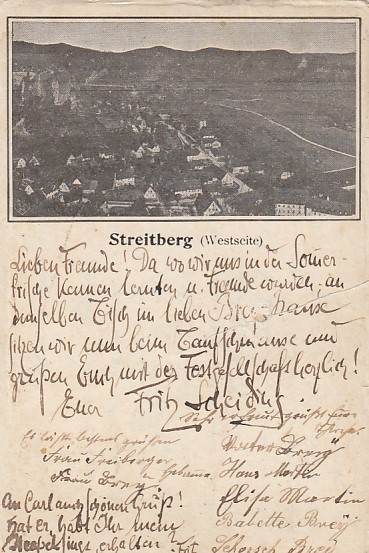 Streitberg (Westseite)
Lieben Freunde! Da wo wir uns in der Somer-
frische kennen lernten u. Freunde wurden, an
demselben Tisch im lieben Brey-hause
sitzen wir nun beim Taufschmause und
grüßen Euch mit der Festgesellschaft herzlich!
Euer Fritz
Es läßt bestens grüßen
Frau Freiberger
Frau Brey Hebamme
Brey
Hans Martin
Elise Martin
Babette Brey
Schorsch Brey
An Carl auch schönen Gruß!
hat er, habt Ihr mein
erhalten?